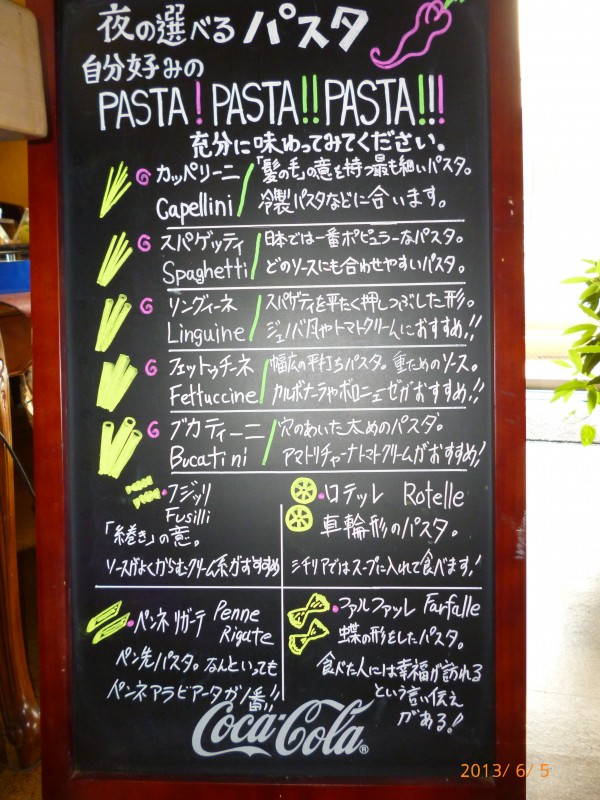 夜の選べるパスタ
自分好みの
PASTA! PASTA!! PASTA!!!
充分に味わってみてください。
カッペリーニ/「髪の毛」の意を持つ最も細いパスタ。
Capellini/冷製パスタなどに合います。
スパゲッティ/日本では一番ポピュラーなパスタ。
Spaghetti/どのソースにも合わせやすいパスタ。
リングィーネ/スパゲティを平たく押しつぶした形。
Linguine/ジェノバ風やトマトクリームにおすすめ!!
フェットゥチーネ/幅広の平打ちパスタ。重ためのソース。
Fettuccine/カルボナーラやボロニェーゼがおすすめ!!
ブカティーニ/穴のあいた太めのパスタ。
Bucatini/アマトリチャーナトマトクリームがおすすめ!
フジッリ
Fusilli
「糸巻き」の意。
ソースがよくからむクリーム系がおすすめ
ロテッレ Rotelle
車輪形のパスタ。
シチリアではスープに入れて食べます!
ペンネリガーテ Penne
Rigate
ペン先パスタ。なんといっても
ペンネアラビアータが1番!!
ファルファッレ Farfalle
蝶の形をしたパスタ。
食べた人には幸福が訪れる
という言い伝え
がある!
Coca-Cola®
2013/ 6/ 5